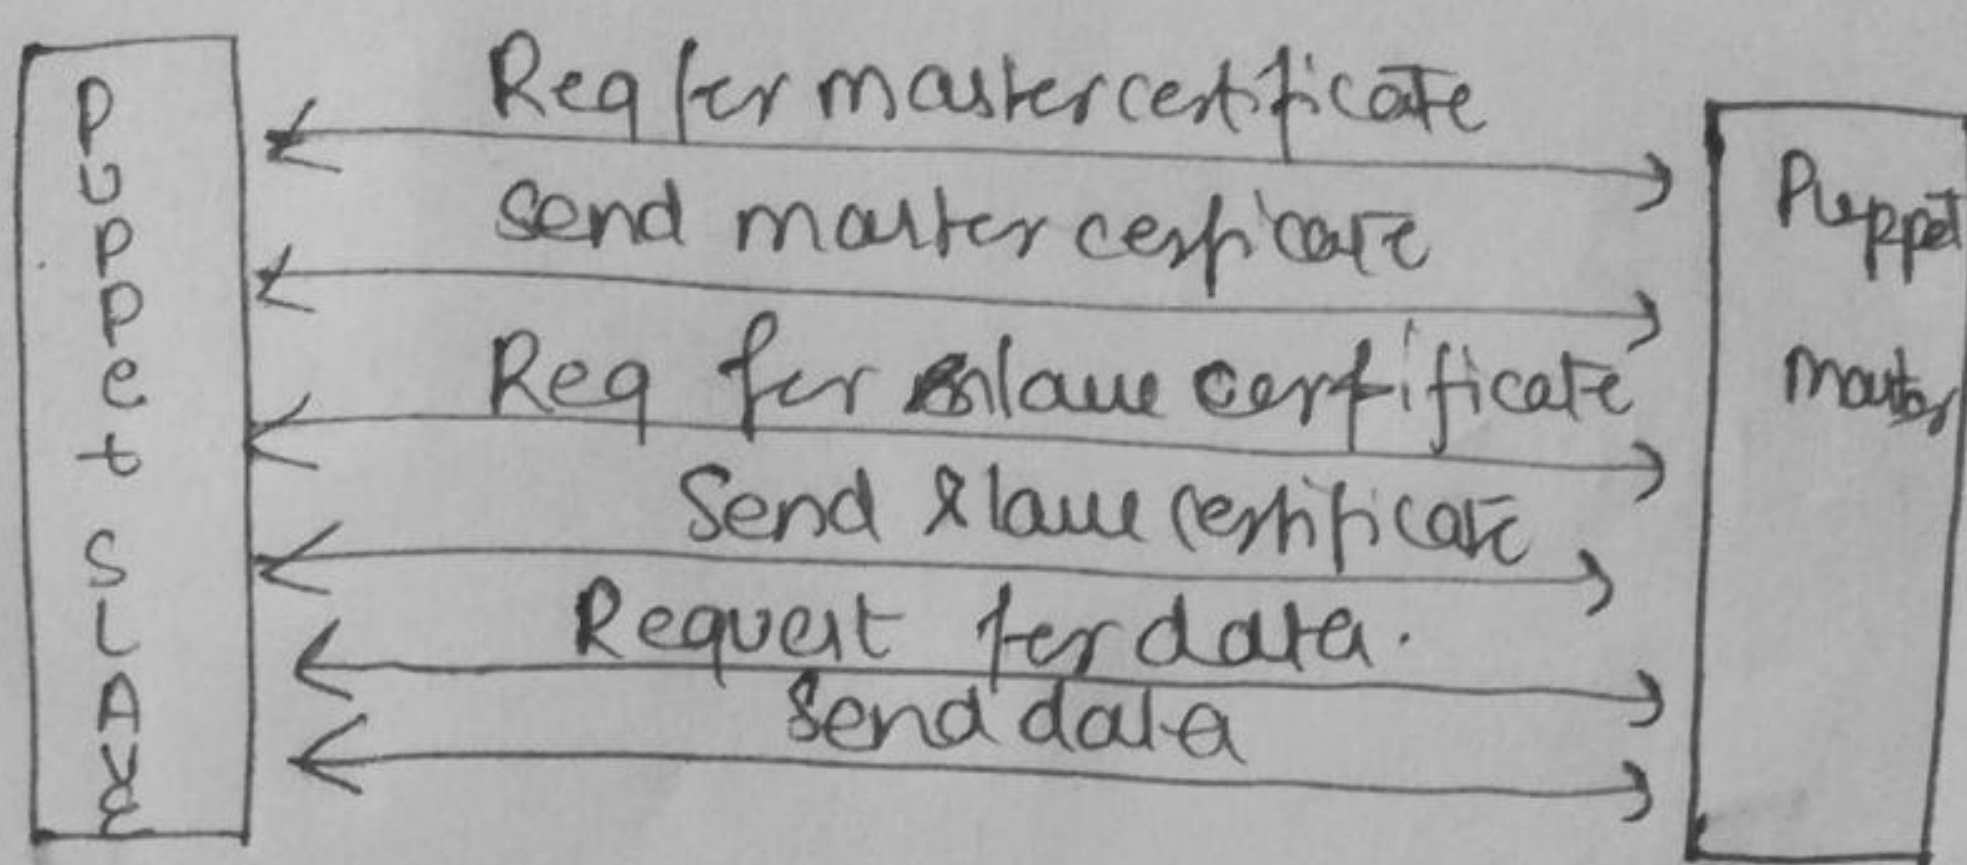 Puppet SLAVE
Req for master certificate
Send master cerficate
Req for slave certificate
Send slave certificate
Request for data.
Send data
Puppet
master